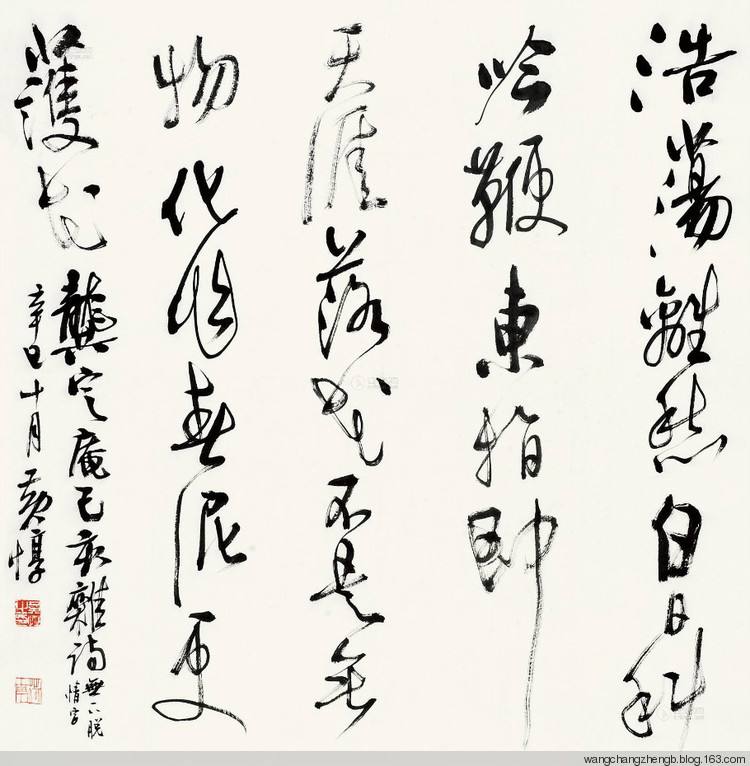 浩蕩離愁白日斜
吟鞭東指即
天涯落花不是無
物化作春泥更
護花
龔定庵己亥雜詩
無下脫
情字
辛巳十月黃惇
wangchangzhengb.blog.163.com